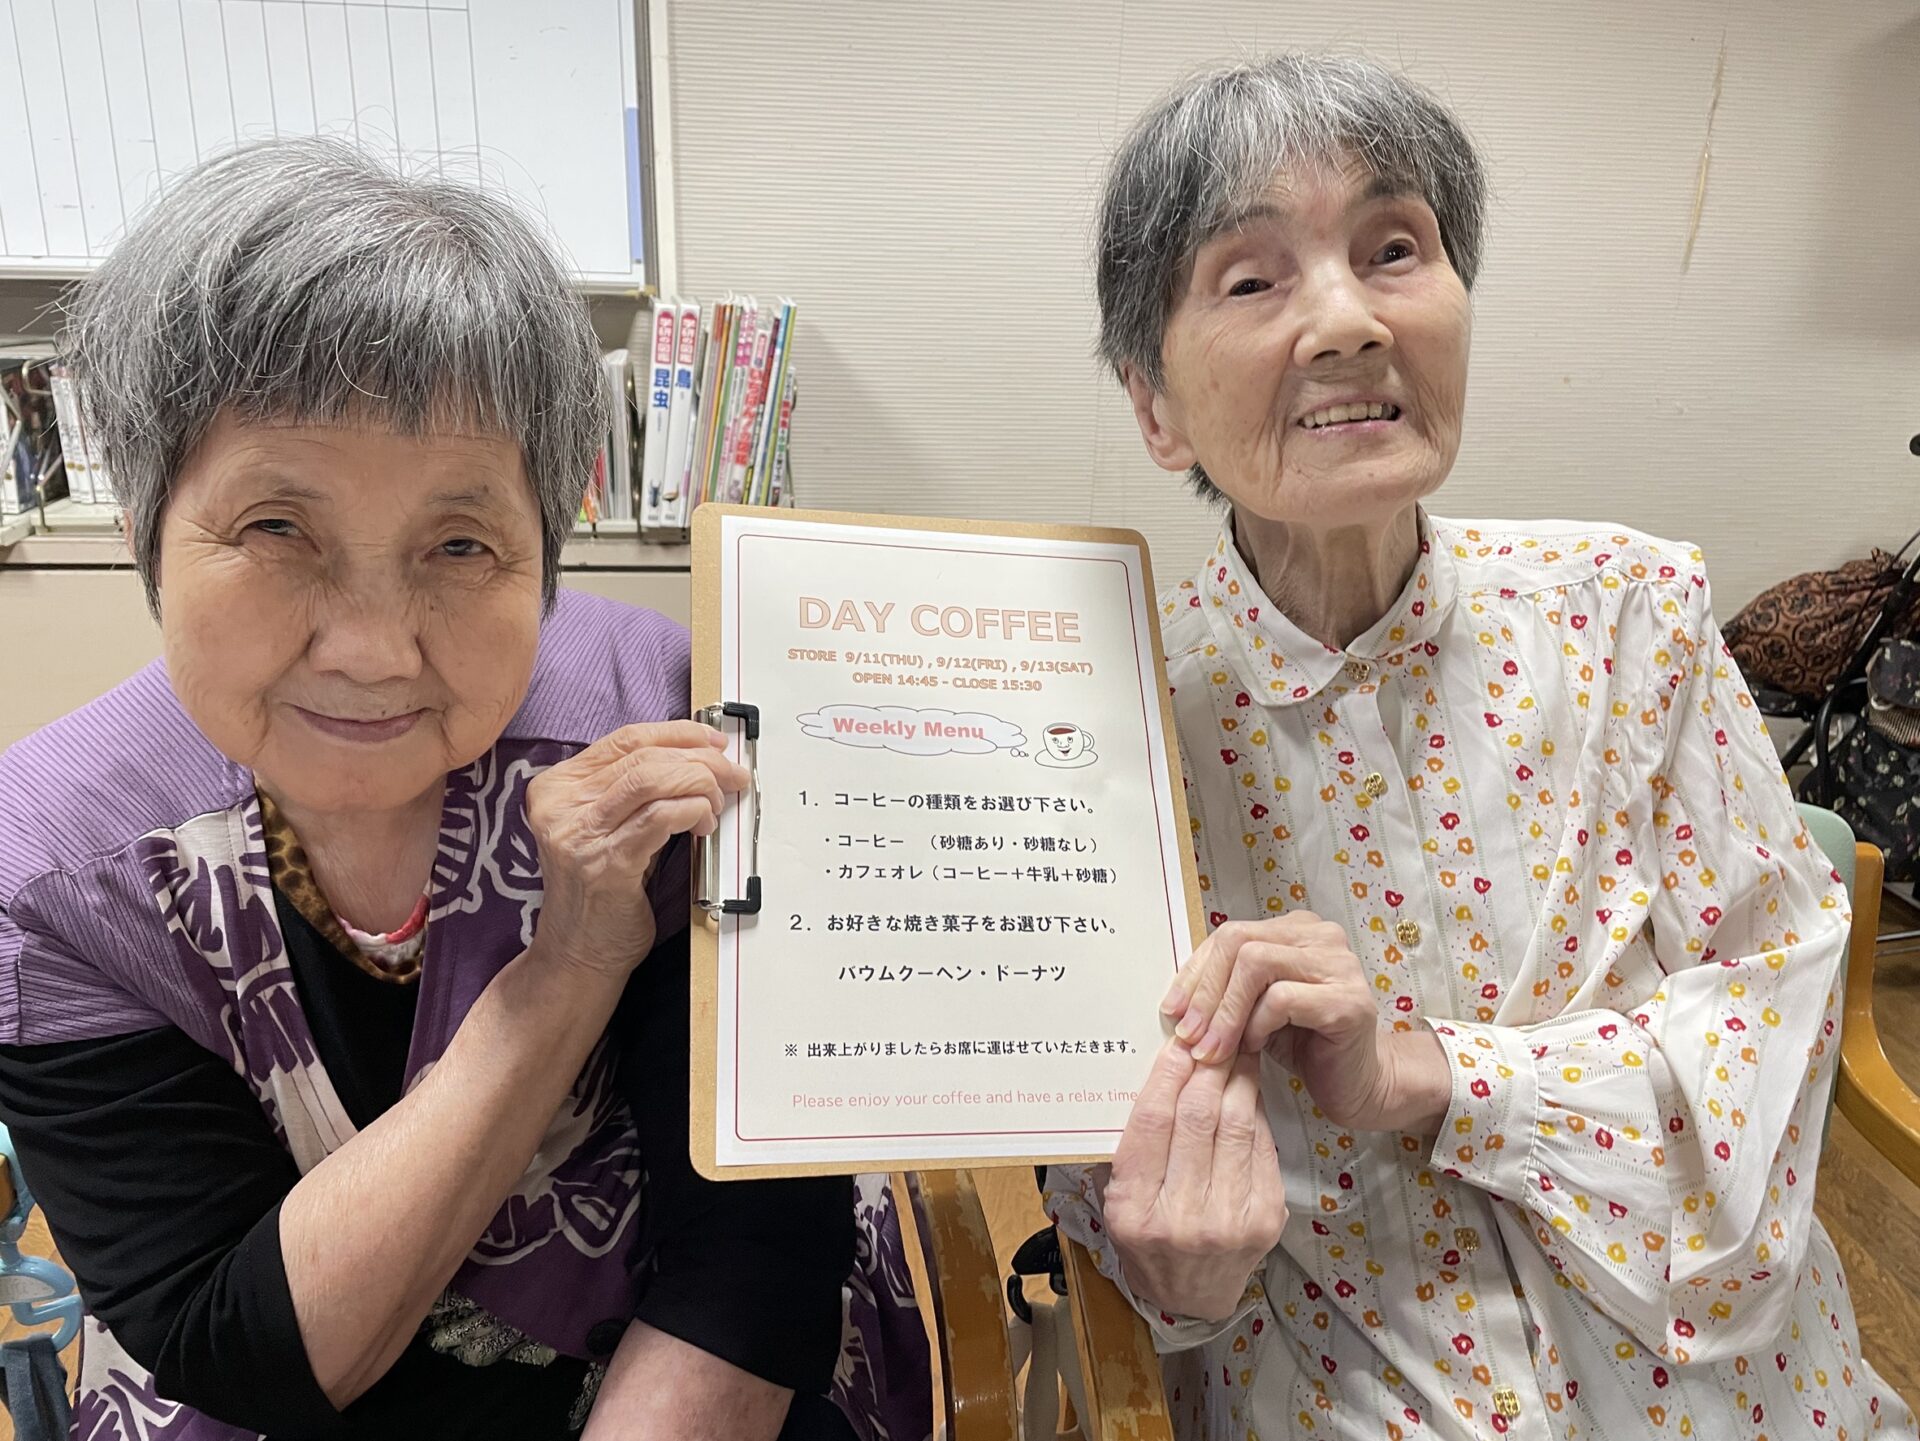 学研の図鑑
昆虫
学研の図鑑
鳥
DAY COFFEE
STORE 9/11(THU) , 9/12(FRI) , 9/13(SAT)
OPEN 14:45 - CLOSE 15:30
Weekly Menu
1. コーヒーの種類をお選び下さい。
・コーヒー （砂糖あり・砂糖なし）
・カフェオレ（コーヒー＋牛乳＋砂糖）
2. お好きな焼き菓子をお選び下さい。
バウムクーヘン・ドーナツ
※ 出来上がりましたらお席に運ばせていただきます。
Please enjoy your coffee and have a relax time